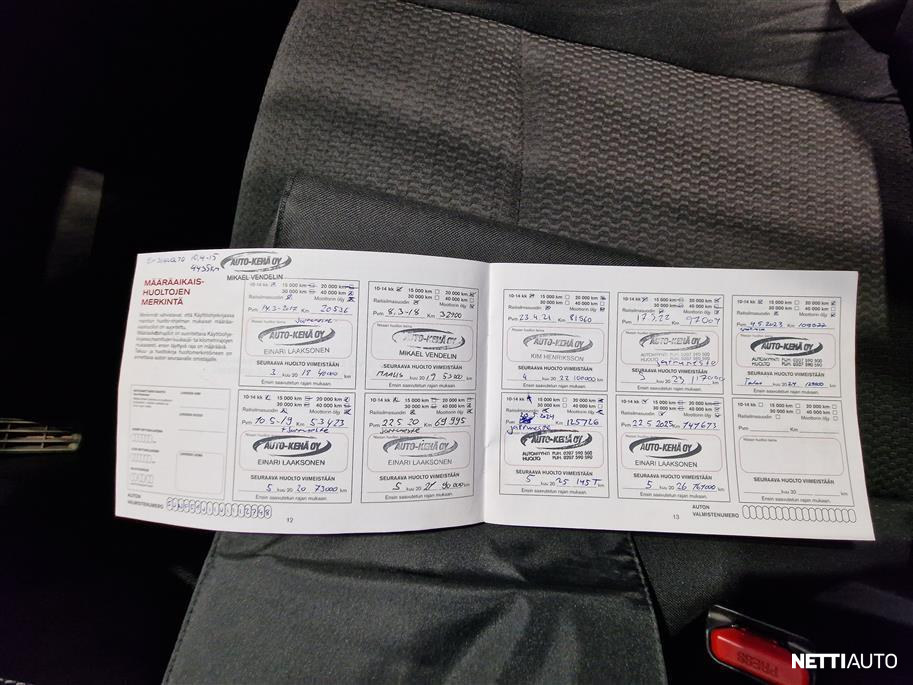 ENSIHUOLTO 10.4-15
4435KM
AUTO-KEHÄ OY
MIKAEL VENDELIN
MÄÄRÄAIKAIS-
HUOLTOJEN
MERKINTÄ
10-14 kk 15 000 km 20 000 km
30 000 km 40 000 km
Raitisilmasuodin Moottorin öljy
Pvm 14.3-2017 Km 20536
AUTO-KEHÄ OY
EINARI LAAKSONEN
SEURAAVA HUOLTO VIIMEISTÄÄN
3 kuu 20 18 40000 km
Ensin saavutetun rajan mukaan.
10-14 kk 15 000 km 20 000 km
30 000 km 40 000 km
Raitisilmasuodin Moottorin öljy
Pvm 8.3-18 Km 32900
Nissan huollon leima
AUTO-KEHÄ OY
MIKAEL VENDELIN
SEURAAVA HUOLTO VIIMEISTÄÄN
MAALIS kuu 20 19 53000 km
Ensin saavutetun rajan mukaan.
10-14 kk 15 000 km 20 000 km
30 000 km 40 000 km
Raitisilmasuodin Moottorin öljy
Pvm 10.5-19 Km 53473
AUTO-KEHÄ OY
EINARI LAAKSONEN
SEURAAVA HUOLTO VIIMEISTÄÄN
5 kuu 20 20 73000 km
Ensin saavutetun rajan mukaan.
10-14 kk 15 000 km 20 000 km
30 000 km 40 000 km
Raitisilmasuodin Moottorin öljy
Pvm 22.5 20 Km 69995
AUTO-KEHÄ OY
EINARI LAAKSONEN
SEURAAVA HUOLTO VIIMEISTÄÄN
5 kuu 20 21 90000 km
Ensin saavutetun rajan mukaan.
AUTON
VALMISTENUMERO
12
10-14 kk 15 000 km 20 000 km
30 000 km 40 000 km
Raitisilmasuodin Moottorin öljy
Pvm 23.4.21 Km 81560
Nissan huollon leima
AUTO-KEHÄ OY
KIM HENRIKSSON
SEURAAVA HUOLTO VIIMEISTÄÄN
4 kuu 20 22 100000 km
Ensin saavutetun rajan mukaan.
10-14 kk 15 000 km 20 000 km
30 000 km 40 000 km
Raitisilmasuodin Moottorin öljy
Pvm Km 97004
Nissan huollon leima
AUTO-KEHÄ OY
SEURAAVA HUOLTO VIIMEISTÄÄN
5 kuu 20 23 117000 km
Ensin saavutetun rajan mukaan.
10-14 kk 15 000 km 20 000 km
30 000 km 40 000 km
Raitisilmasuodin Moottorin öljy
Pvm 4.5.2023 Km
AUTO-KEHÄ OY
SEURAAVA HUOLTO VIIMEISTÄÄN
kuu 20 24 km
Ensin saavutetun rajan mukaan.
10-14 kk 15 000 km 20 000 km
30 000 km 40 000 km
Raitisilmasuodin Moottorin öljy
Pvm 2024 Km 125726
AUTO-KEHÄ OY
AUTOMYYNTI PUH. 0207 590 500
HUOLTO PUH. 0207 590 590
SEURAAVA HUOLTO VIIMEISTÄÄN
5 kuu 20 25 145T km
Ensin saavutetun rajan mukaan.
10-14 kk 15 000 km 20 000 km
30 000 km 40 000 km
Raitisilmasuodin Moottorin öljy
Pvm 22.5 2025 Km 147673
Nissan huollon leima
AUTO-KEHÄ OY
EINARI LAAKSONEN
SEURAAVA HUOLTO VIIMEISTÄÄN
5 kuu 20 26 km
Ensin saavutetun rajan mukaan.
10-14 kk 15 000 km 20 000 km
30 000 km 40 000 km
Raitisilmasuodin Moottorin öljy
Pvm Km
Nissan huollon leima
SEURAAVA HUOLTO VIIMEISTÄÄN
kuu 20 km
Ensin saavutetun rajan mukaan.
13
AUTON
VALMISTENUMERO
PRESS
NETTIAUTO